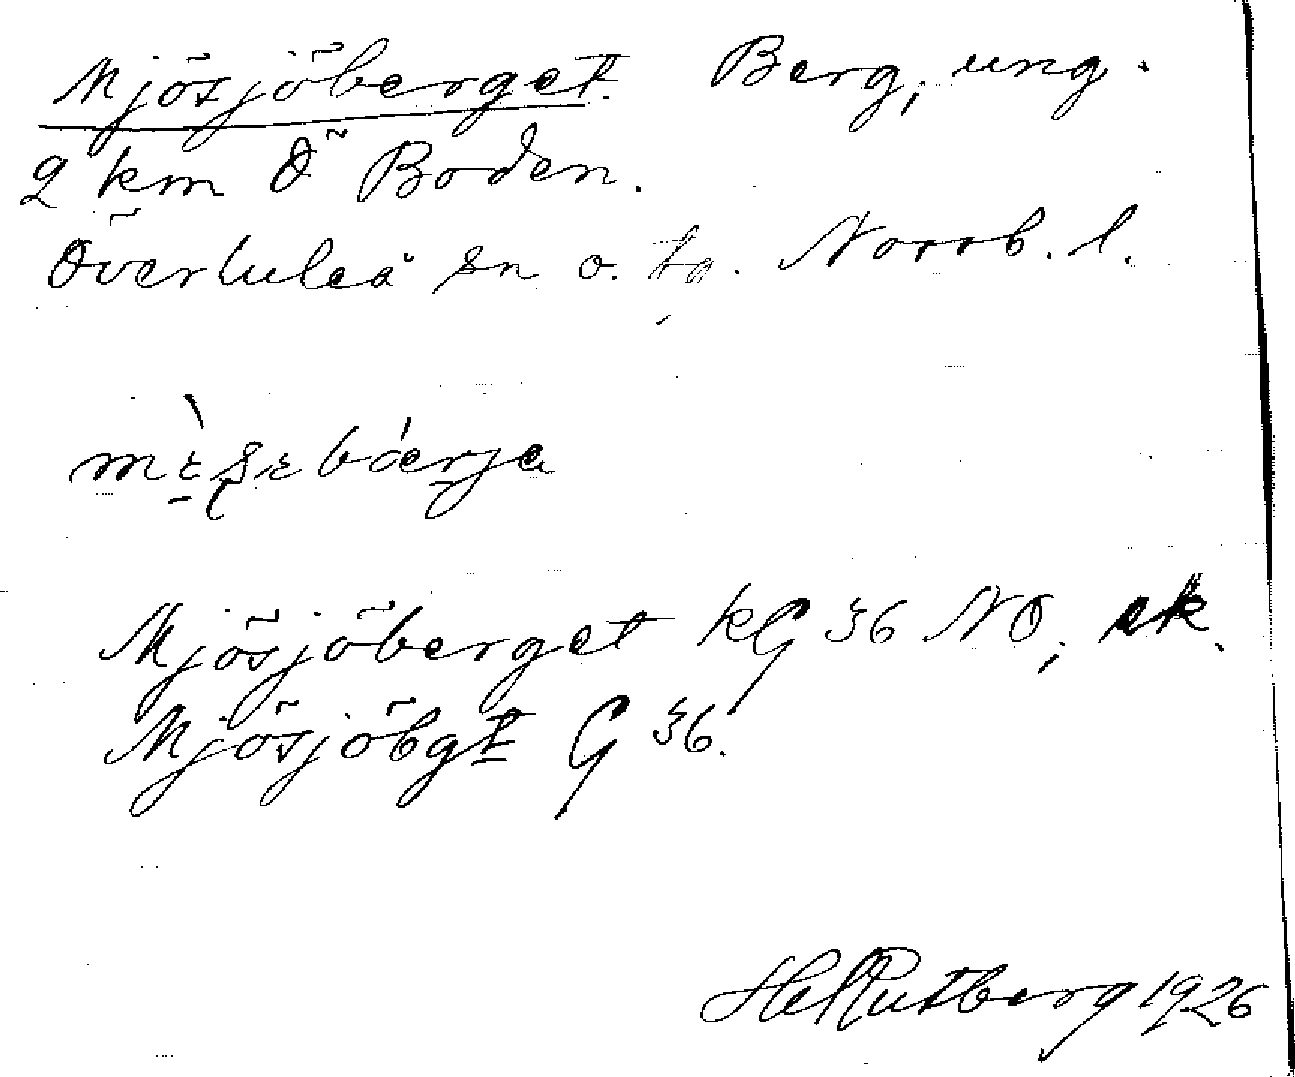 Mjösjöberget. Berg, ung.
2 km Ö Boden.
Överluleå sn o. tg. Norrb. l.
Mjösjöberget kG 36 NO, ek.
Mjösjöbgt G 36.
Hel Rutberg 1926